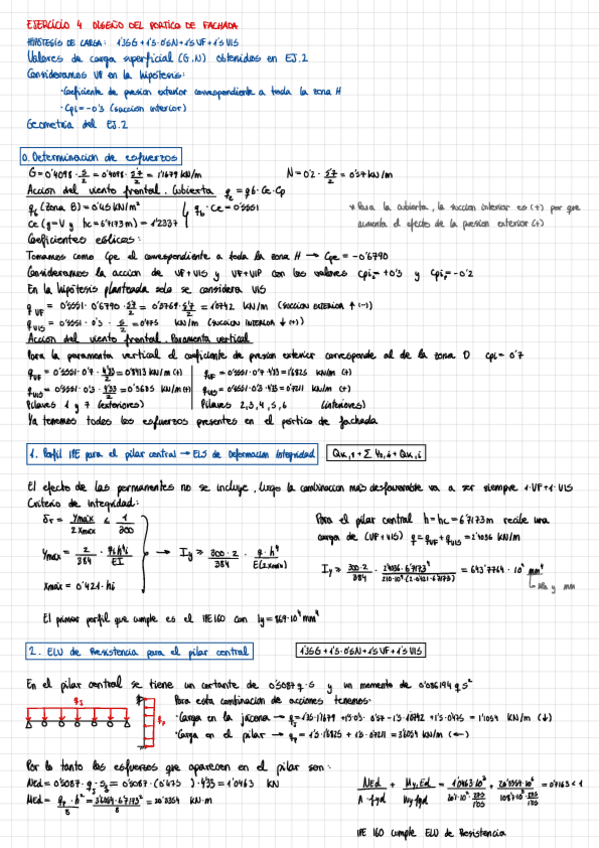 EJERCICIO 4 DISEÑO DEL PORTICO DE FACHADA
HIPOTESIS DE CARGA: 1'35G + 1'5·0'5N + 1'5VF + 1'5VIS
Valores de carga superficial (G.N) obtenidos en EJ.2
Consideramos VF en la hipotesis:
·Coeficiente de presion exterior correspondiente a toda la zona H
·Cpi = -0'3 (succion interior)
Geometria del EJ.2
0. Determinacion de esfuerzos
G = 0'4098 · s/2 = 0'4098 · 5'7/2 = 1'1679 kN/m N = 0'2 · 5'7/2 = 0'57 kN/m
Accion del viento frontal. Cubierta qe = qb · Ce · Cp
qb (Zona B) = 0'45 kN/m²
Ce (g = V y hc = 6'7173m) = 1'2337
qb · Ce = 0'5551
* Para la cubierta, la succion interior es (+) por que
aumenta el efecto de la presion exterior (+)
Coeficientes eolicos:
Tomamos como Cpe el correspondiente a toda la zona H → Cpe = -0'6790
Consideramos la accion de VF+VIS y VF+VIP con los valores Cpi = +0'3 y Cpi = -0'2
En la hipotesis planteada solo se considera VIS
q VF = 0'5551 · 0'6790 · 5'7/2 = 0'3769 · 5'7/2 = 1'0742 kN/m (succion EXTERIOR ↑ (-))
q VIS = 0'5551 · 0'3 · s/2 = 0'475 kN/m (succion INTERIOR ↓ (+))
Accion del viento frontal. Paramento vertical
Para la paramento vertical el coeficiente de presion exterior corresponde al de la zona D cpe = 0'7
qVF = 0'5551 · 0'7 · 4'33/2 = 0'8413 kN/m (+) qVF = 0'5551 · 0'7 · 4'33 = 1'6825 kN/m (+)
qVIS = 0'5551 · 0'3 · 4'33/2 = 0'3605 kN/m (+) qVIS = 0'5551 · 0'3 · 4'33 = 0'7211 kN/m (+)
Pilares 1 y 7 (exteriores) Pilares 2,3,4,5,6 (interiores)
Ya tenemos todos los esfuerzos presentes en el portico de fachada
1. Perfil IPE para el pilar central → ELS de Deformacion Integridad Qk,1 + Σ Ψ0,i · Qk,i
El efecto de las permanentes no se incluye, luego la combinacion mas desfavorable va a ser siempre 1·VF + 1·VIS
Criterio de integridad:
δr = ymax / 2 xmax ≤ 1/300
ymax = 2/384 · qi hi⁴ / EI
xmax = 0'421 · hi
→ Iy ≥ 300 · 2 / 384 · q · h⁴ / E(2xmax)
Para el pilar central h = hc = 6'7173 m recibe una
carga de (VF + VIS) q = qVF + qVIS = 2'4036 kN/m
Iy ≥ 300·2/384 · 2'4036 · 6'7173⁴ / 210·10⁶ (2·0'421·6'7173) = 643'7764 · 10⁴ mm⁴
El primer perfil que cumple es el IPE 160 con Iy = 869·10⁴ mm⁴
2. ELU de Resistencia para el pilar central 1'35G + 1'5·0'5N + 1'5VF + 1'5VIS
En el pilar central se tiene un cortante de 0'5087 q·s y un momento de 0'086194 q s²
Para esta combinacion de acciones tenemos:
·Carga en la jacena → qJ = 1'35·1'1679 + 1'5·0'5 · 0'57 - 1'5·1'0742 + 1'5·0'475 = 1'1054 kN/m (↓)
·Carga en el pilar → qp = 1'5·1'6825 + 1'5·0'7211 = 3'6054 kN/m (←)
Por lo tanto los esfuerzos que aparecen en el pilar son:
Med = qp · h² / 8 = 3'6054·6'7173² / 8 = 20'3354 kN·m
IPE 160 cumple ELU de Resistencia